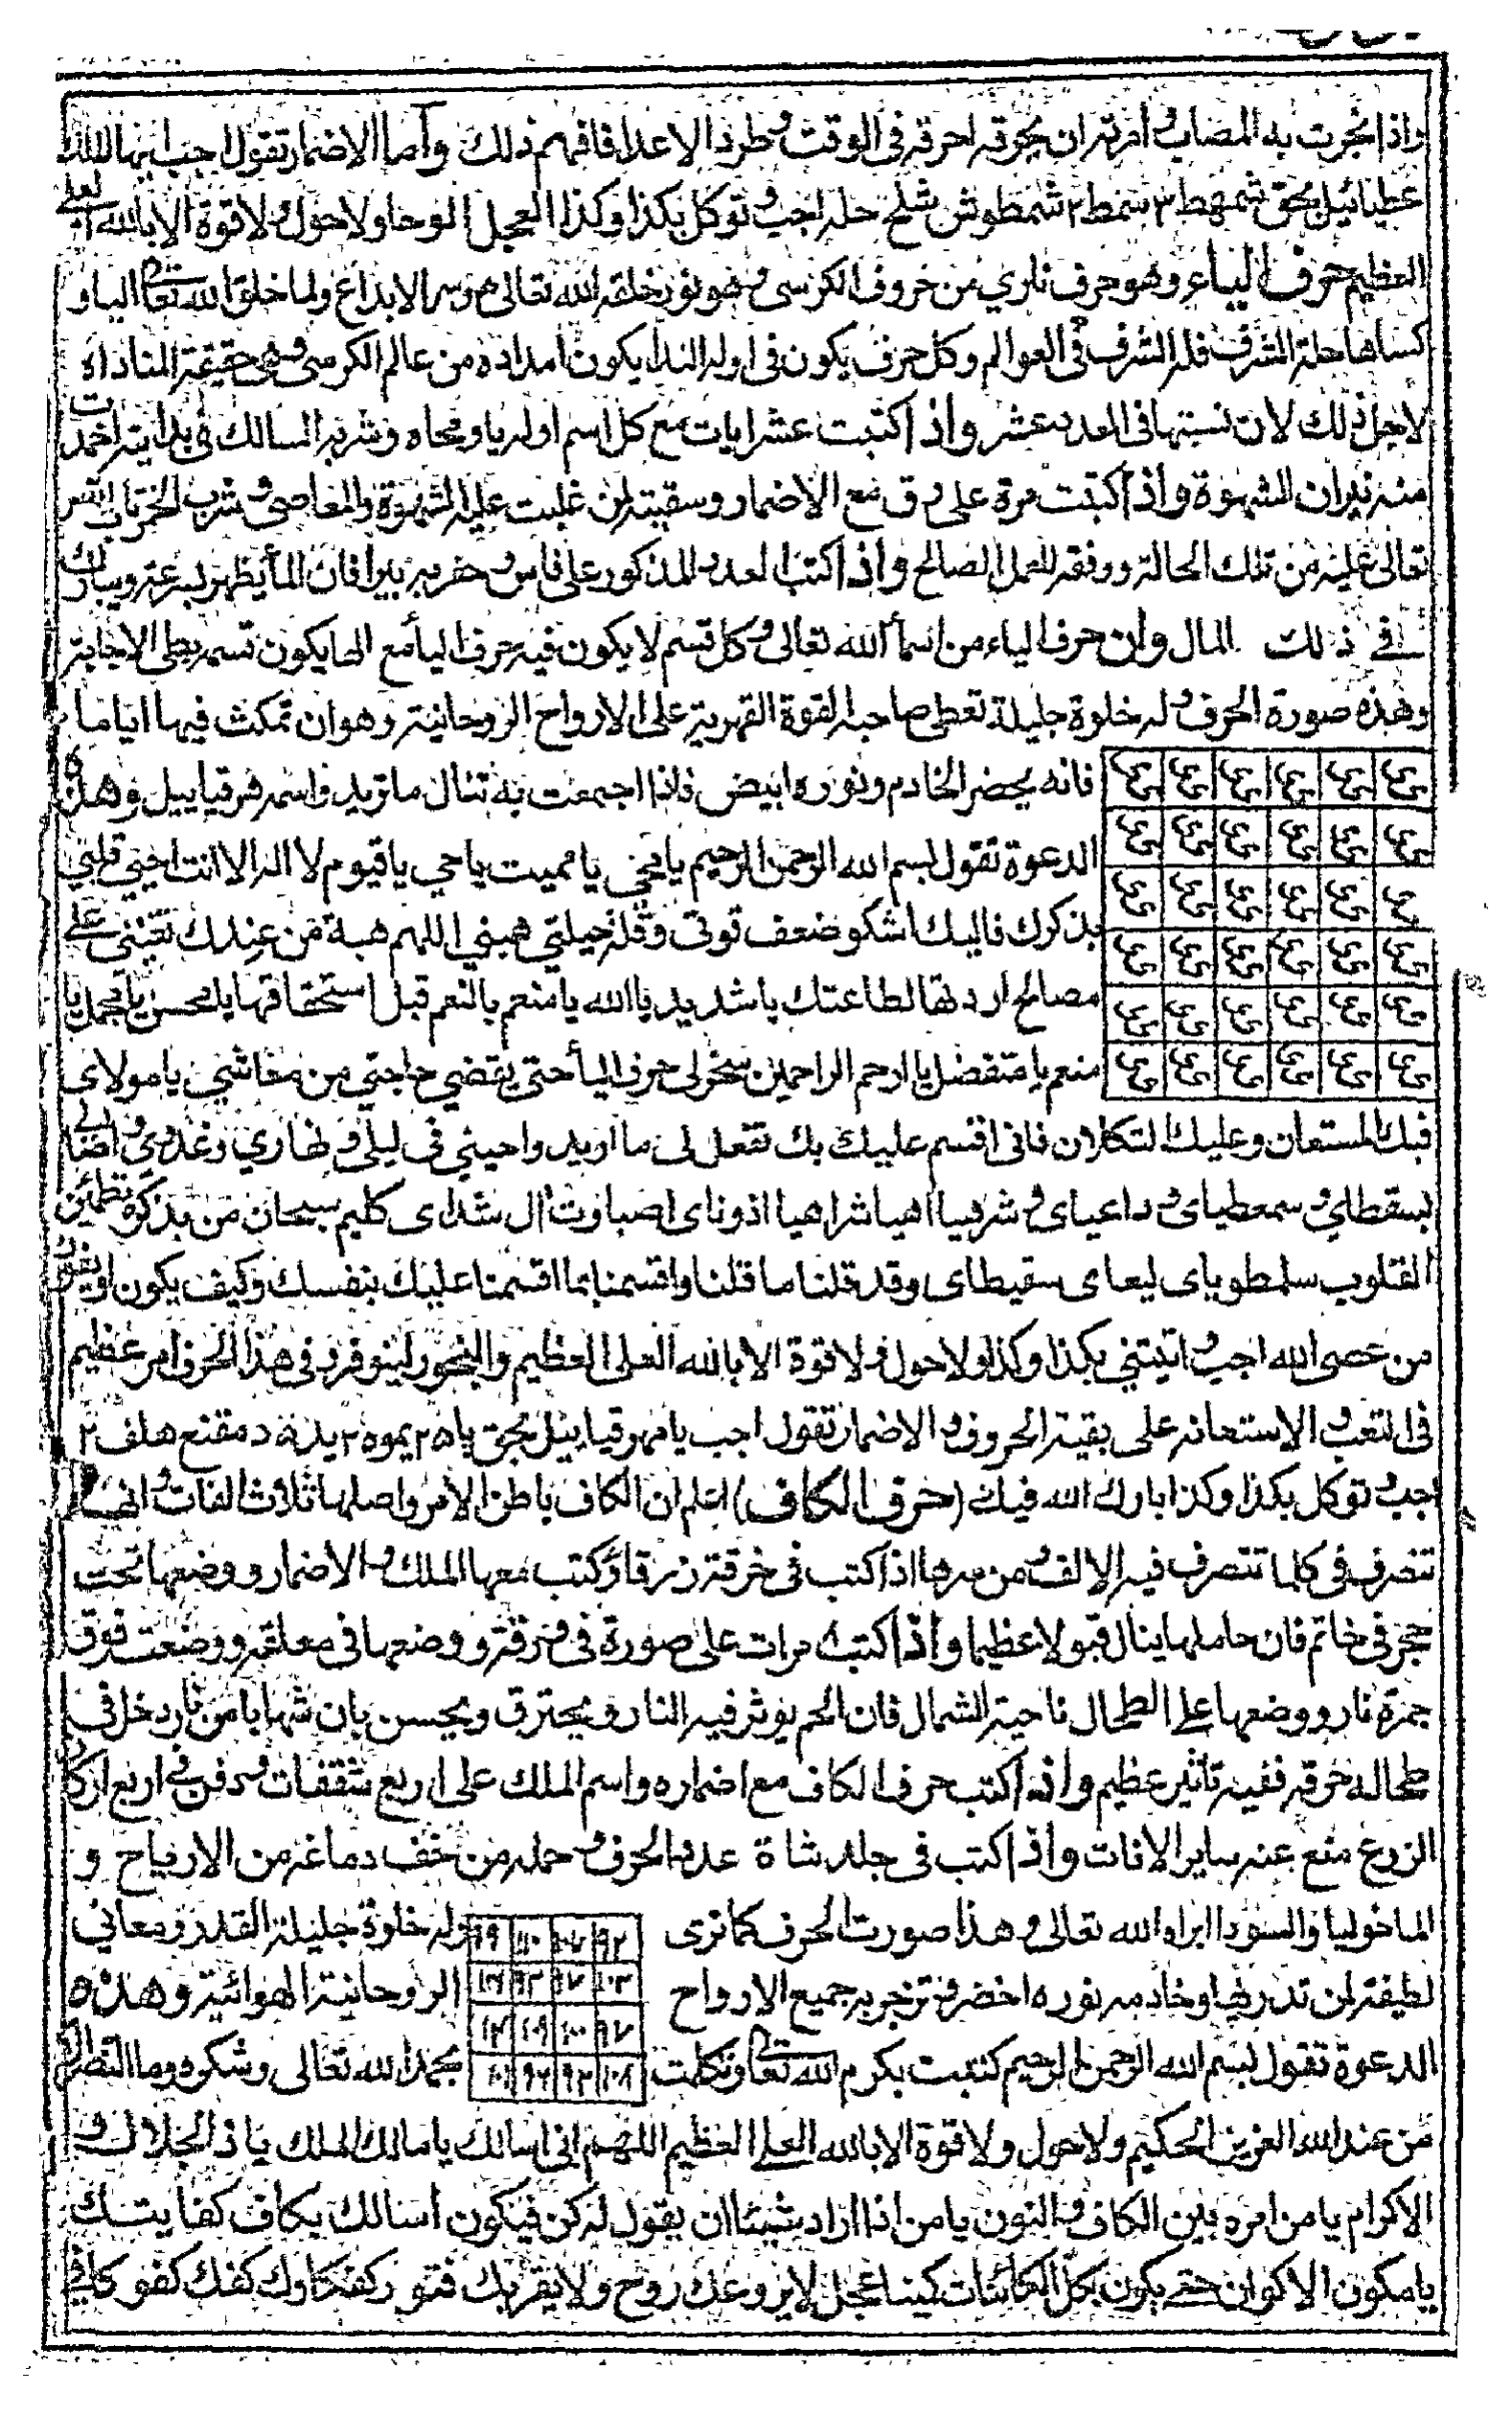 واذا بخرت به المصاب وامرته ان يحرقه احرقه في الوقت وطرد الاعدا فافهم ذلك واما الاضمار تقول اجب ايها الملك
عطيائيل بحق شمهط ٢ سمط ٢ شمطوش شلح حله اجب وتوكل بكذا وكذا العجل الوحا ولا حول ولا قوة الا بالله العلي
العظيم حرف الياء وهو حرف ناري من حروف الكرسي وهو نور خلقه الله تعالى وسر الابداع ولما خلق الله تعالى اليا و
كساها حلة الشرف فله الشرف في العوالم وكل حرف يكون في اوله الندا يكون امداده من عالم الكرسي وهي حقيقة المناداة
لاجل ذلك لان نسبتها في العدد عشر واذا كتبت عشر ايات مع كل اسم اوله يا ومحاه وشربه السالك في بدايته اخمدت
منه نيران الشهوة واذا كتبت مرة على رق مع الاضمار وسقيته لمن غلبت عليه الشهوة والمعاصي وشرب الخمر تاب الله
تعالى عليه من تلك الحالة ووفقه للعمل الصالح واذا كتب العدد المذكور على فاس وحفر به بيرا فان الما يظهر بسرعة ويبارك
في ذلك المال وان حرف الياء من اسما الله تعالى وكل قسم لا يكون فيه حرف اليا مع الها يكون قسمه بطى الاجابة
وهذه صورة الحرف وله خلوة جليلة تعطى صاحبه القوة القهرية على الارواح الروحانية وهو ان تمكث فيها اياما
فانه يحضر الخادم ونوره ابيض فاذا اجمعت به تنال ما تريد واسمه هرقياييل وهذه
الدعوة تقول بسم الله الرحمن الرحيم يا محي يا مميت يا حي يا قيوم لا اله الا انت احيي قلبي
بذكرك فاليك اشكو ضعف قوتى وقلة حيلتي هبني اللهم هبة من عندك تعينني على
مصالح اردتها لطاعتك يا شديد يا الله يا منعم بالنعم قبل استحقاقها يا محسن يا مجمل يا
منعم يا متفضل يا ارحم الراحمين سخر لى حرف اليا حتى يقضي حاجتي من معاشي يا مولاى
فبك المستعان وعليك التكلان فانى اقسم عليك بك تفعل لى ما اريد واحيني في ليلى ونهاري وغدوى
بسقطاي وسمعطياى وداعياى وشربيا اهيا شراهيا اذوناى اصباوت ال شداى كليم سبحان من بذكره تطمئن
القلوب سلمطوياى ليعاى سقيطاى وقد قلنا ما قلنا واقسمنا بما اقسمنا عليك بنفسك وكيف يكون
من عصى الله اجب وايتني بكذا وكذا ولا حول ولا قوة الا بالله العلى العظيم والبخور لينوفر وفى هذا الحرف امر عظيم
فى التعب والاستعانه على بقية الحروف والاضمار تقول اجب يا مهرقياييل بحق ياه ٢ يموه ٢ يدنه دمقنع هلف ٢
اجب وتوكل بكذا وكذا بارك الله فيك (حرف الكاف) اعلم ان الكاف باطن الامر واصلها ثلاث الفات وانها
تتصرف في كلما تتصرف فيه الالف ومن سرها اذا كتب فى خرقة زرقا وكتب معها الملك والاضمار ووضعها تحت
حجر في خاتم فان حاملها ينال قبولا عظيما واذا كتب ٨ مرات على صورة في خرقة ووضعها فى معلقه ووضعت فوق
جمرة نار ووضعها على الطحال ناحية الشمال فان الحم يوثر فيه النار ويحترق ويحسن بان شهابا من نار دخل فى
طحاله حرقه ففيه تأثير عظيم واذا كتب حرف الكاف مع اضماره واسم الملك على اربع شقفات ودفن في اربع اركان
الزرع منع عنه ساير الافات واذا كتب فى جلد شاة عدد الحرف وحمله من خف دماغه من الارياح و
الماخوليا والسودا ابراه الله تعالى وهذا صورت الحرف كما ترى وله خلوة جليلة القدر ومعاني
لطيفة لمن تدربها وخادمه نوره اخضر جميع الارواح الروحانية الهوائية وهذه
الدعوة تقول بسم الله الرحمن الرحيم كتبت بكرم الله تعالى وتكلمت بحمد الله تعالى وشكره وما النصر الا
من عند الله العزيز الحكيم ولا حول ولا قوة الا بالله العلى العظيم اللهم انى اسالك يا مالك الملك يا ذا الجلال و
الاكرام يا من امره بين الكاف والنون يا من اذا اراد شيئا ان يقول له كن فيكون اسالك بكاف كفايتك
يا مكون الاكوان حتى يكون بكل الكائنات